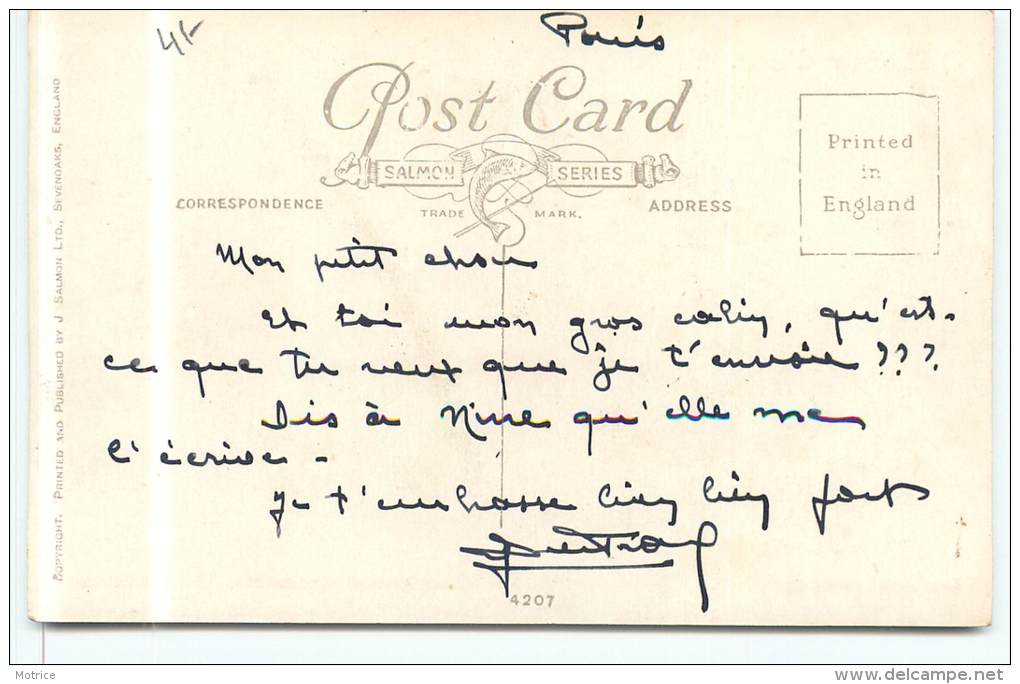 4/-
Paris
Post Card
SALMON SERIES
TRADE MARK.
CORRESPONDENCE
ADDRESS
Printed
in
England
Mon petit chou
Et toi mon gros calin, qu'est-
ce que tu veux que je t'envoie ???
Dis à Nine qu'elle me
l'écrive -
Je t'embrasse bien bien fort
4207
COPYRIGHT. PRINTED AND PUBLISHED BY J SALMON LTD., SEVENOAKS, ENGLAND
Motrice
www.delcampe.net